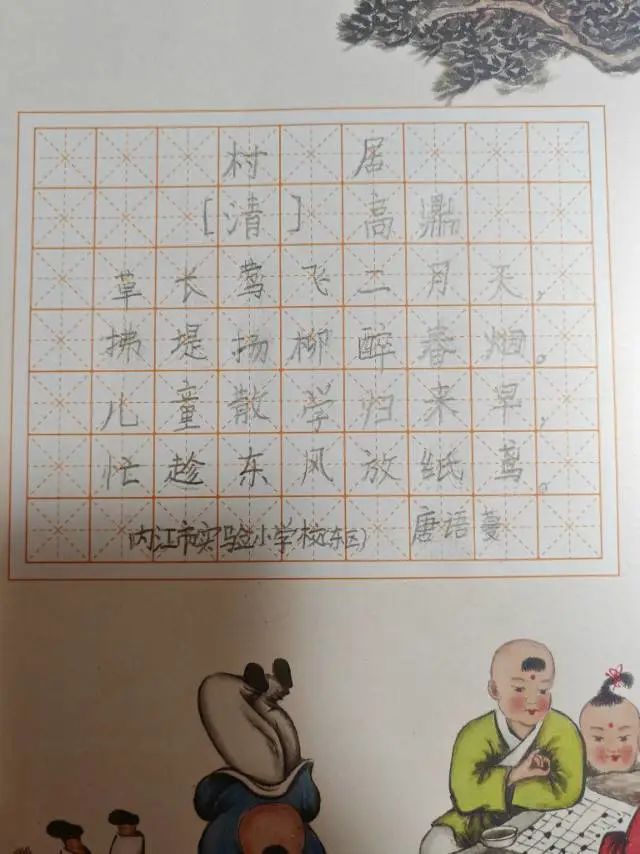 村居
[清] 高鼎
草长莺飞二月天，
拂堤扬柳醉春烟。
儿童散学归来早，
忙趁东风放纸鸢。
内江市实验小学校(东区) 唐语蔓